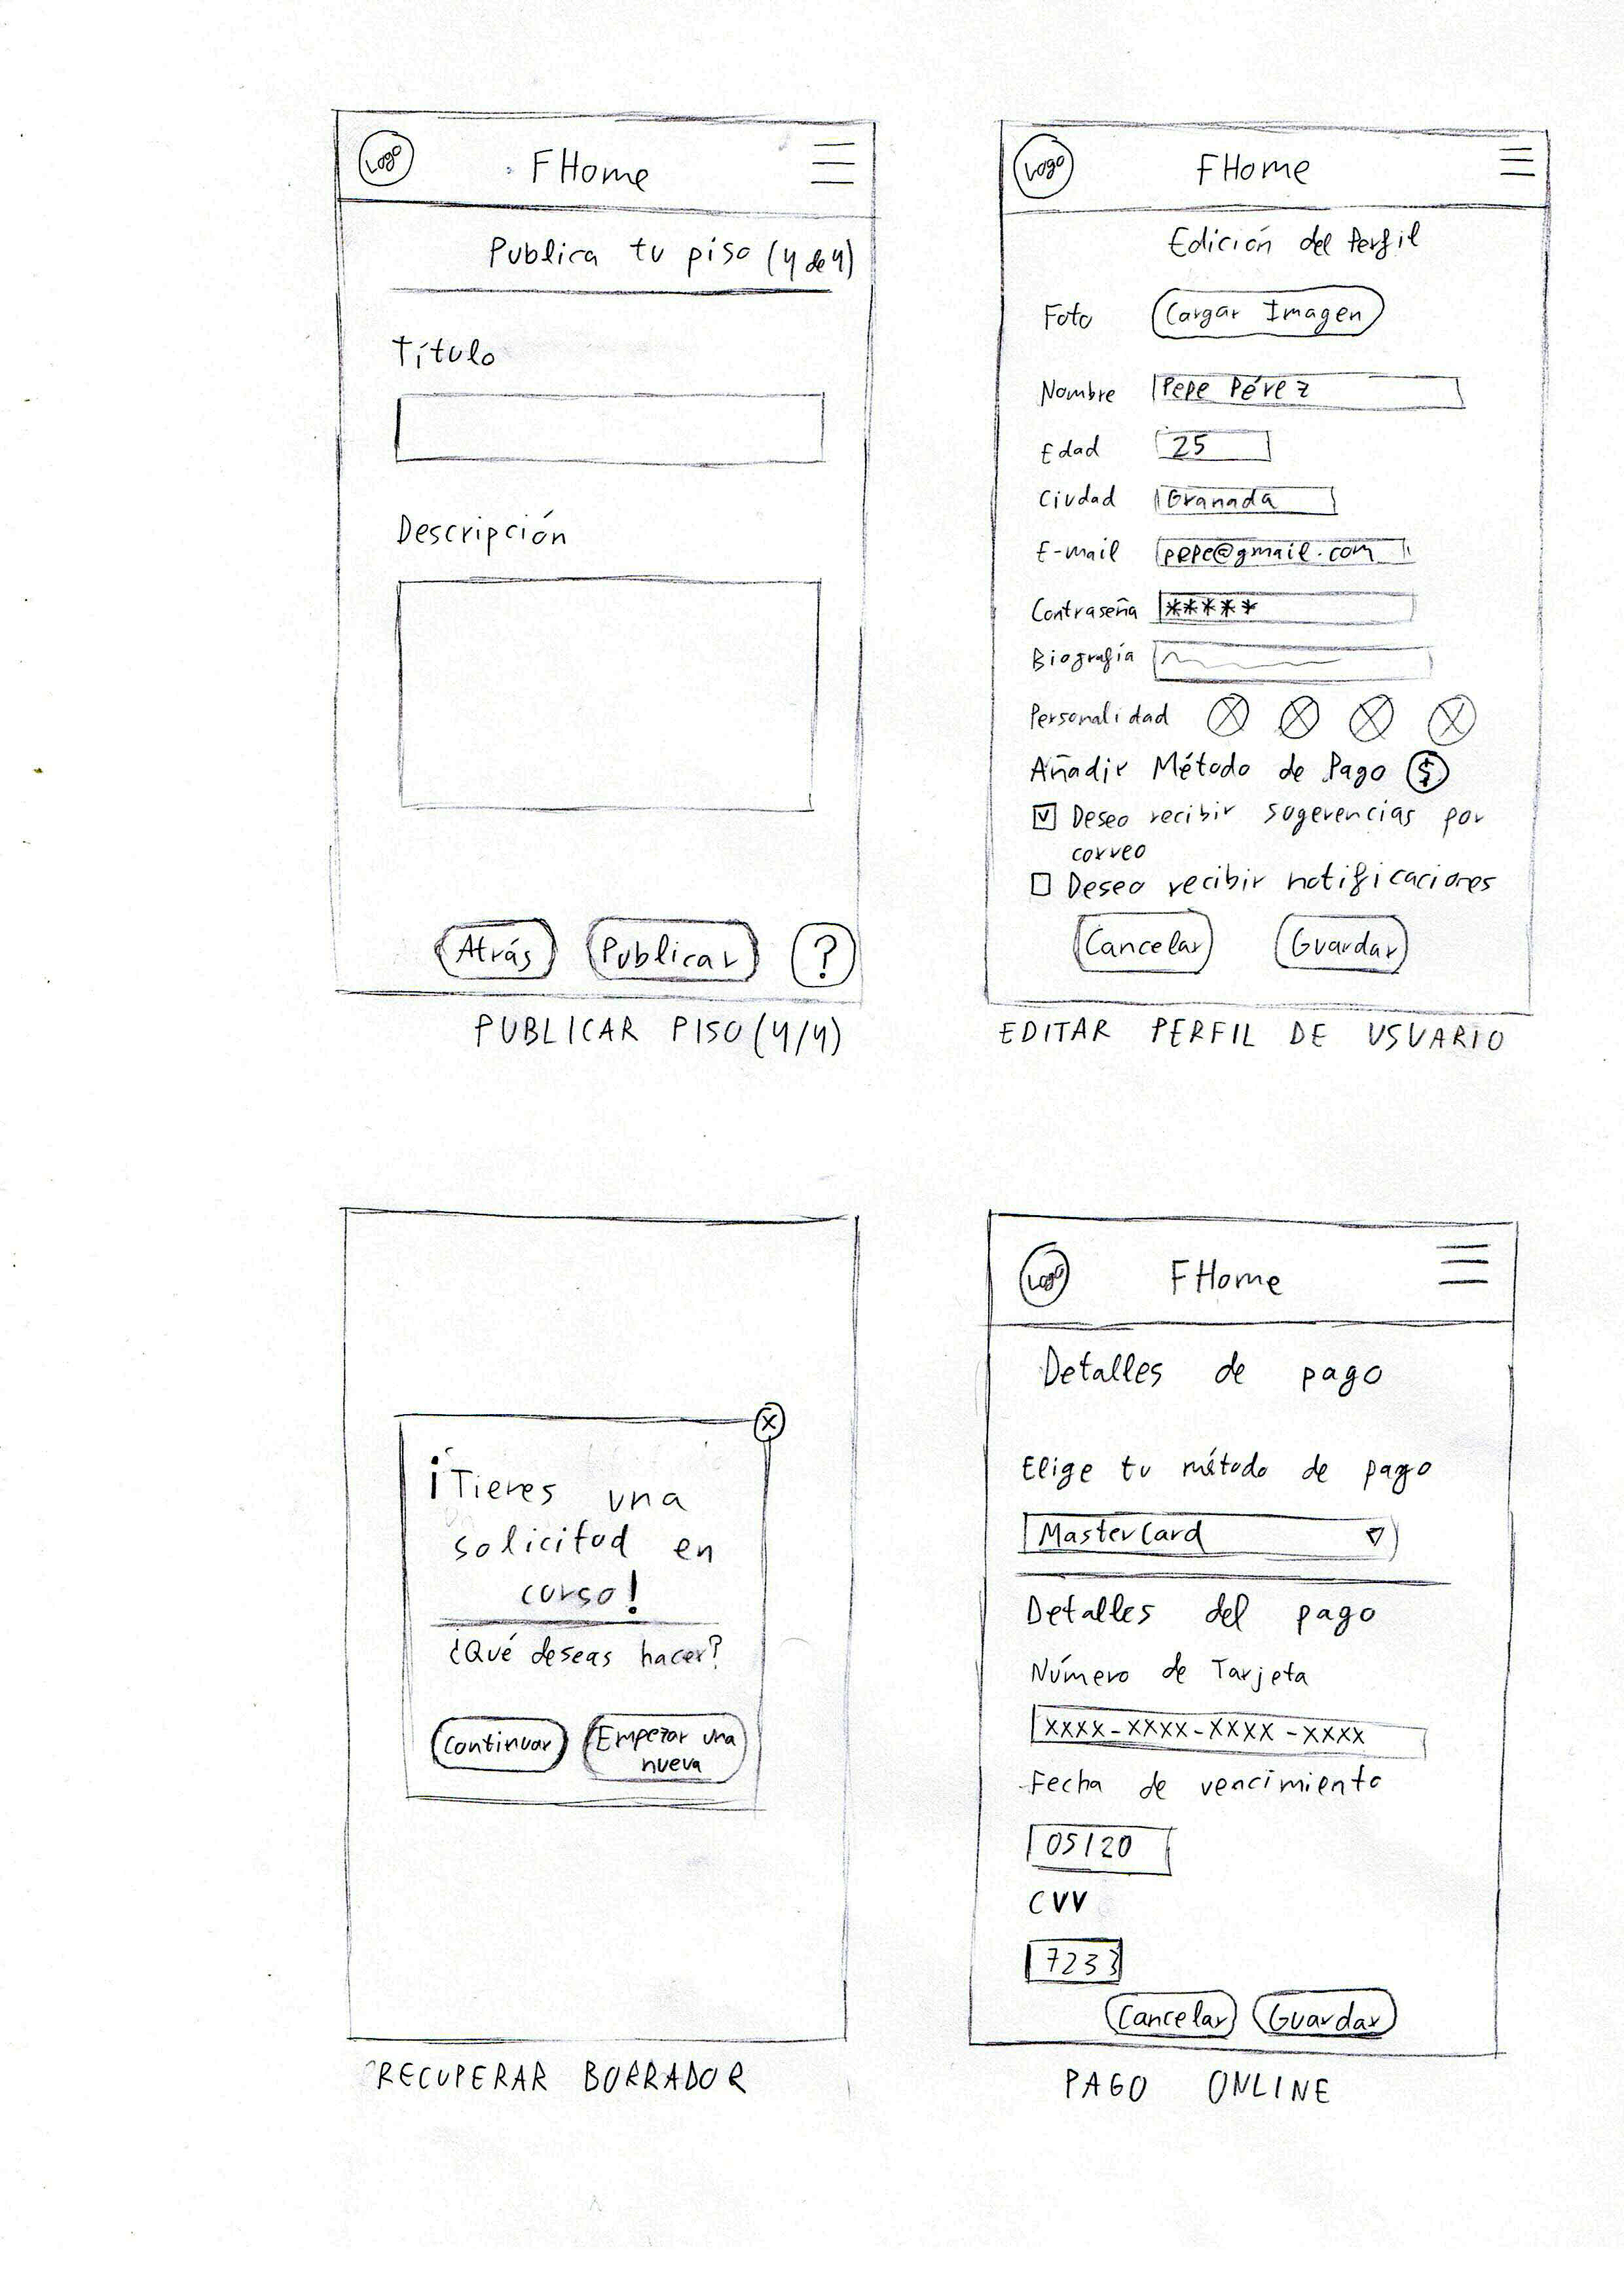 Logo FHome
Publica tu piso (4 de 4)
Título
Descripción
Atrás Publicar ?
PUBLICAR PISO (4/4)
Logo FHome
Edición del Perfil
Foto Cargar Imagen
Nombre Pepe Pérez
Edad 25
Ciudad Granada
E-mail pepe@gmail.com
Contraseña *****
Biografía
Personalidad
Añadir Método de Pago $
Deseo recibir sugerencias por
correo
Deseo recibir notificaciones
Cancelar Guardar
EDITAR PERFIL DE USUARIO
X
¡Tienes una
solicitud en
curso!
¿Qué deseas hacer?
Continuar Empezar una
nueva
RECUPERAR BORRADOR
Logo FHome
Detalles de pago
Elige tu método de pago
MasterCard
Detalles del pago
Número de Tarjeta
XXXX-XXXX-XXXX-XXXX
Fecha de vencimiento
05/20
CVV
7233
Cancelar Guardar
PAGO ONLINE